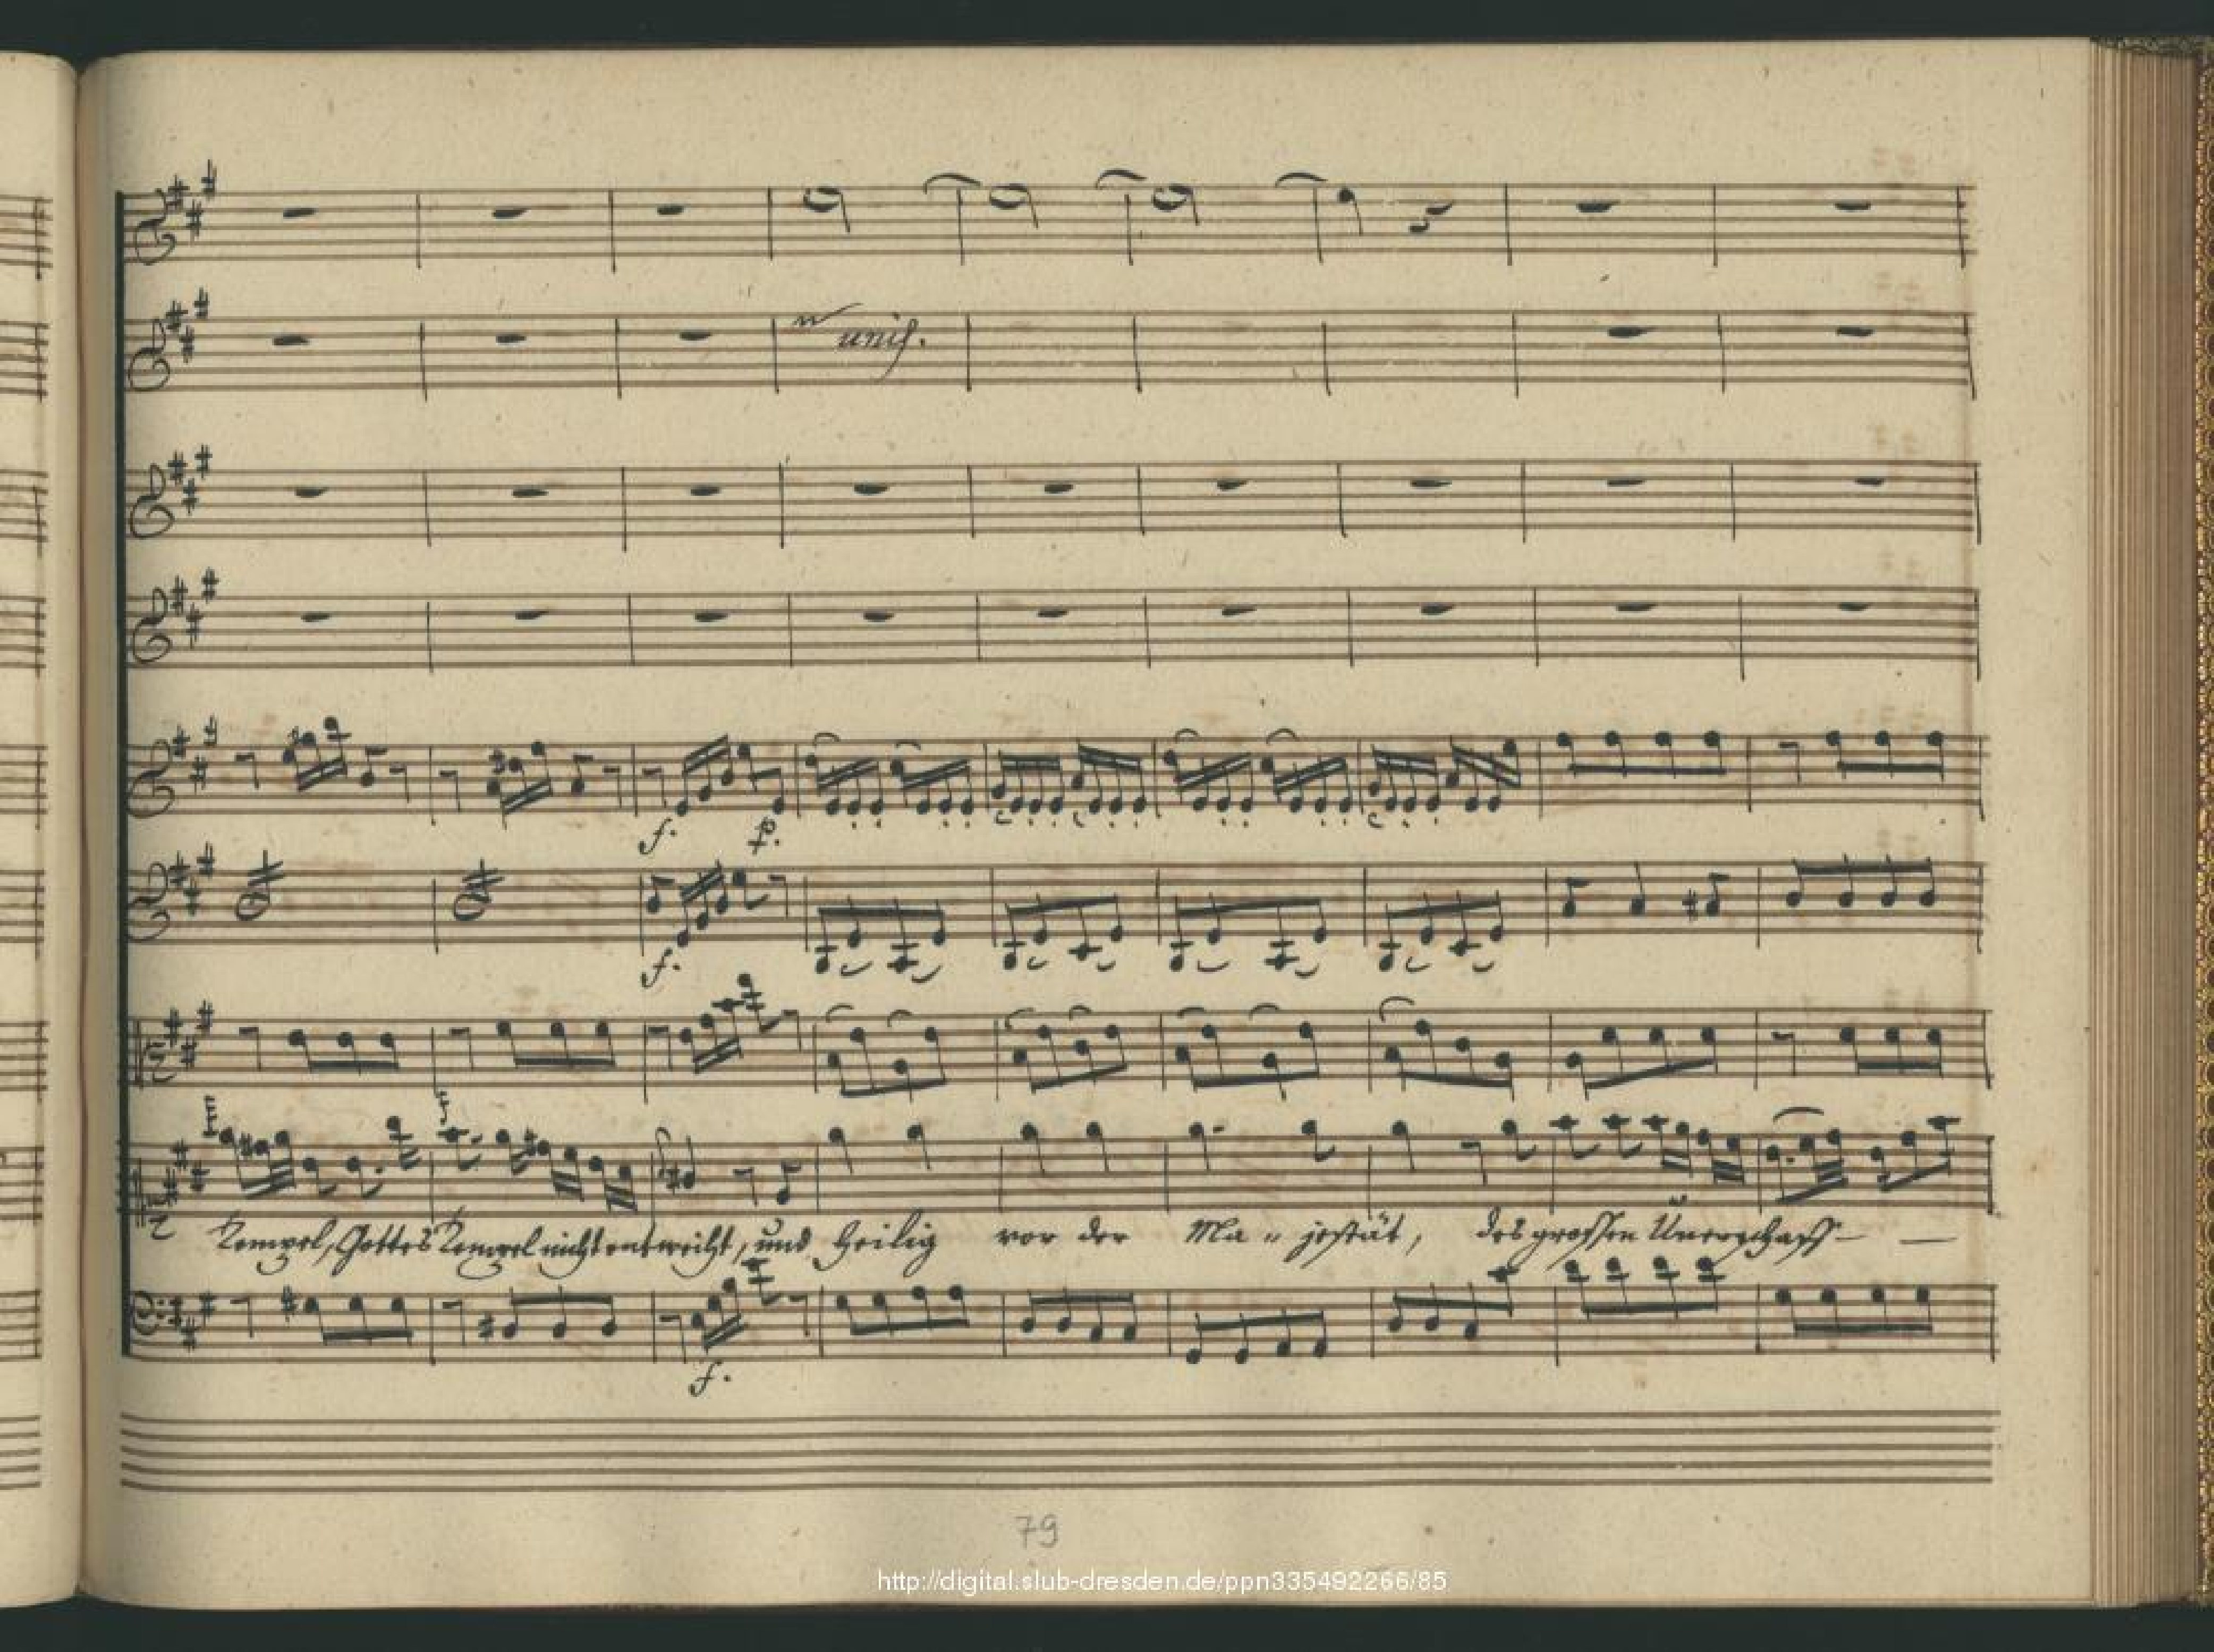 unis.
f. p.
f.
Tempel, Gottes Tempel nicht entweiht, und heilig vor der Ma " jestät, des grossen Unerschaff - —
f.
79
http://digital.slub-dresden.de/ppn335492266/85